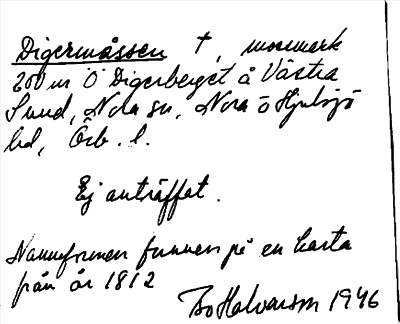 Digermåssen †, mossmark
200 m Ö Digerberget å Västra
Sund, Nora sn, Nora o Hjulsjö
bd, Örb. l.
Ej anträffat.
Namnformen funnen på en karta
från år 1812
Bo Halvarson 1946